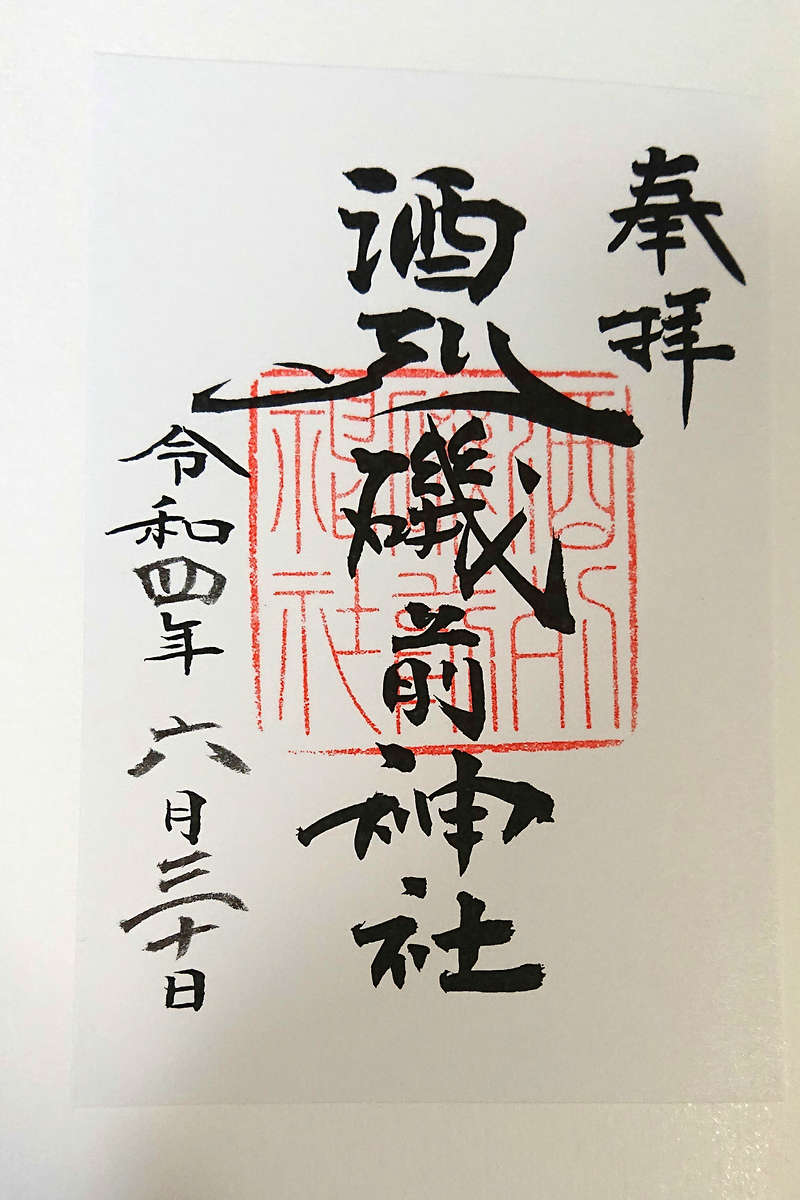 奉拝
酒列磯前神社
令和四年六月三十日
酒列
磯前
神社